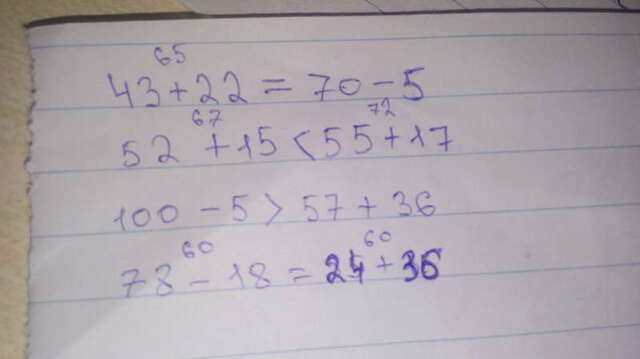 65
43+22=70-5
67 72
52+15<55+17
100-5>57+36
60 60
78-18=24+36